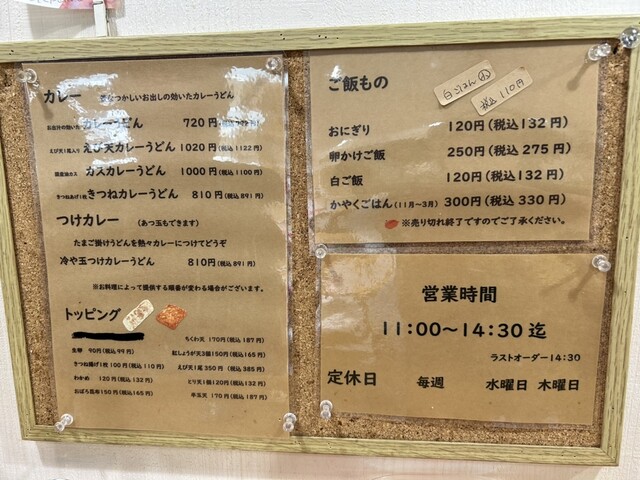 カレー なつかしいお出しの効いたカレーうどん
お出汁の効いた カレーうどん 720円
えび天1尾入り えび天カレーうどん 1020円(税込1122円)
国産油カス カスカレーうどん 1000円(税込1100円)
きつねあげ1枚 きつねカレーうどん 810円(税込891円)
つけカレー (あつ玉もできます)
たまご掛けうどんを熱々カレーにつけてどうぞ
冷や玉つけカレーうどん 810円(税込891円)
※お料理によって提供する順番が変わる場合がございます。
トッピング
生卵 90円(税込99円)
きつね揚げ1枚100円(税込110円)
わかめ 120円(税込132円)
おぼろ昆布150円(税込165円)
ちくわ天 170円(税込187円)
紅しょうが天3個150円(税込165円)
えび天1尾350円(税込385円)
とり天1個120円(税込132円)
半玉天 170円(税込187円)
ご飯もの
白ごはん小
税込110円
おにぎり 120円(税込132円)
卵かけご飯 250円(税込275円)
白ご飯 120円(税込132円)
かやくごはん(11月~3月) 300円(税込330円)
※売り切れ終了ですのでご了承ください。
営業時間
11:00~14:30迄
ラストオーダー14:30
定休日 毎週 水曜日 木曜日